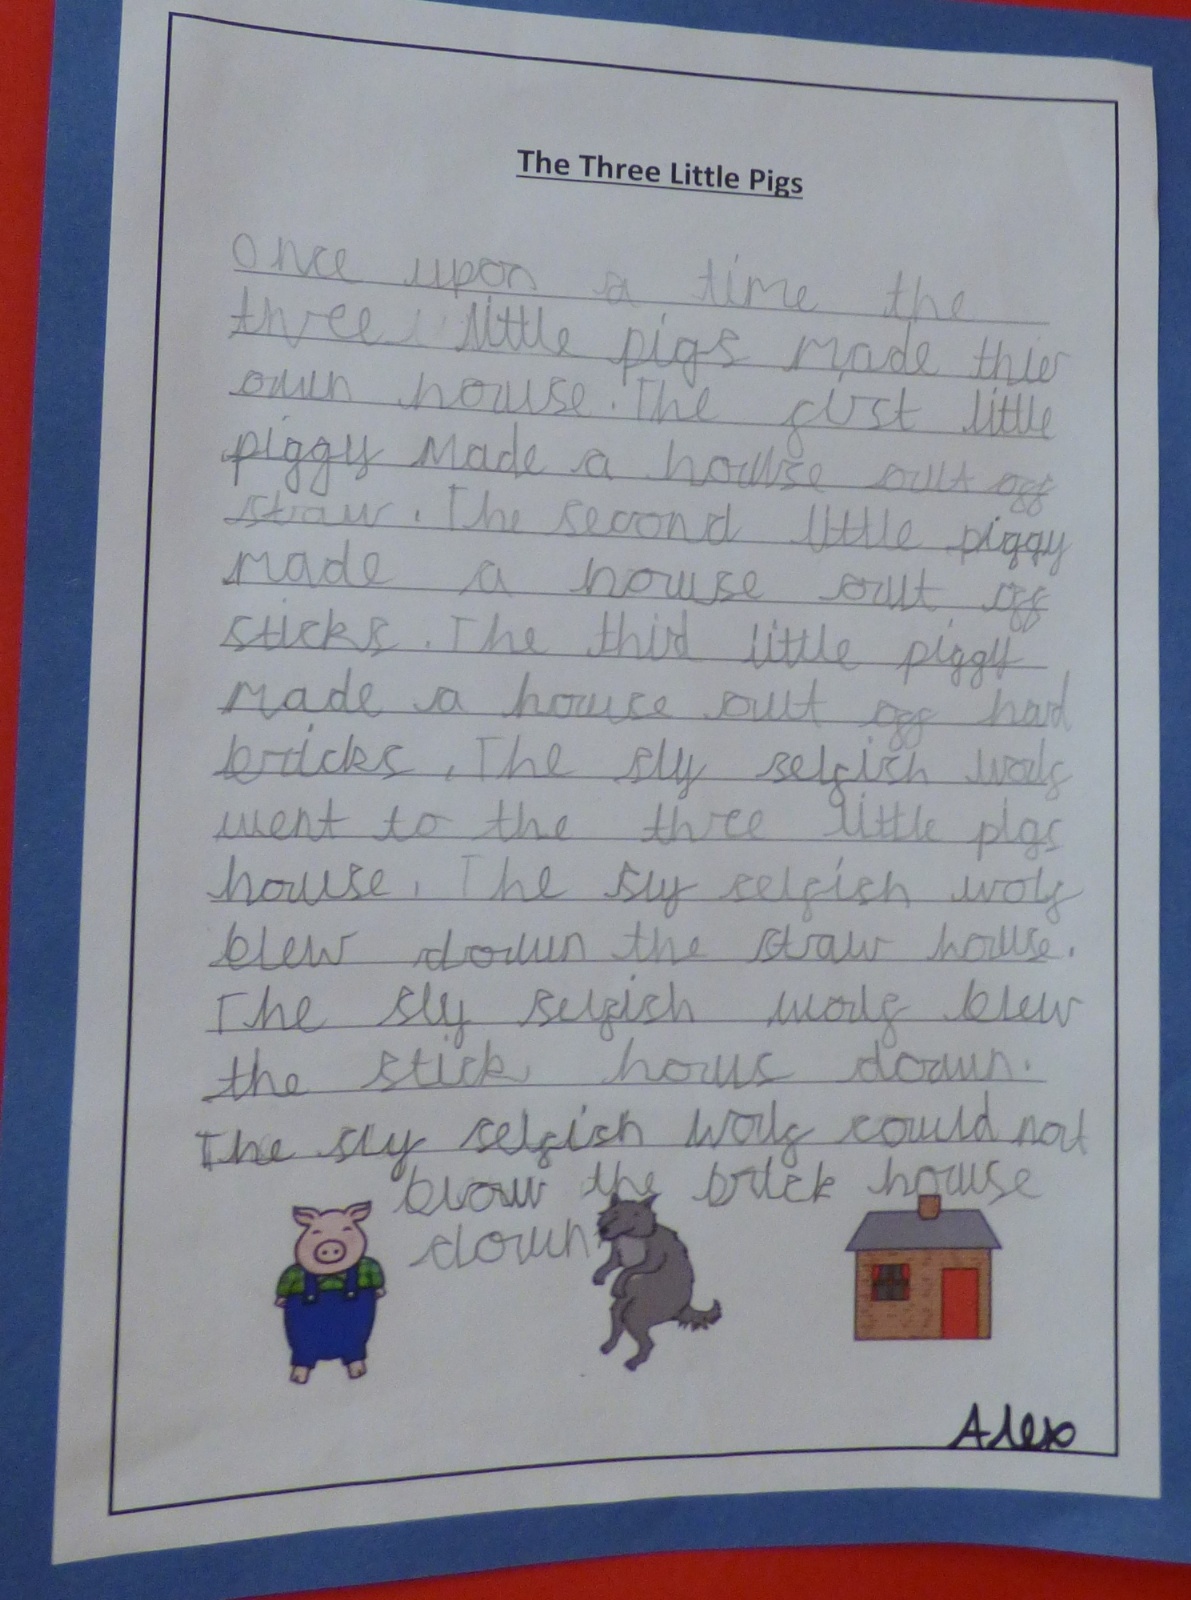 The Three Little Pigs
Once upon a time the
three little pigs made thier
own house. The first little
piggy Made a house out off
straw. The second little piggy
made a house out off
sticks. The third little piggy
made a house out off hard
bricks. The sly selfish wolf
went to the three little pigs
house. The sly selfish wolf
blew down the straw house.
The sly selfish wolf blew
the stick hous down.
The sly selfish Wolf could not
blow the brick house
down
Alex